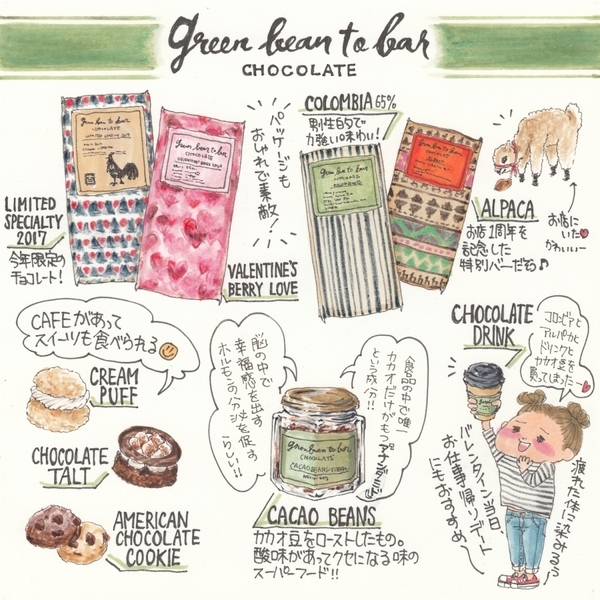 green bean to bar
CHOCOLATE
パッケージも
おしゃれで素敵!
COLOMBIA 65%
野性的で
力強い味わい!
LIMITED
SPECIALTY
2017
今年限定の
チョコレート!
VALENTINE'S
BERRY LOVE
ALPACA
お店1周年を
記念した
特別バーだち♪
お店に
いた
かわいいー
CAFEがあって
スイーツも食べられる
CREAM
PUFF
CHOCOLATE
TALT
AMERICAN
CHOCOLATE
COOKIE
脳の中で
幸福感を出す
ホルモンの分泌を促す
らしい!!
食品の中で唯一
カカオだけがもつ
という成分!!
green bean to bar
CHOCOLATE
CACAO BEANS
カカオ豆をローストしたもの。
酸味があってクセになる味の
スーパーフード!!
CHOCOLATE
DRINK
コロンビアと
アルパカと
ドリンクと
カカオ豆を
買ってしまった…
疲れた体に染みるぅ
バレンタイン当日
お仕事帰りデート
にもおすすめ〜